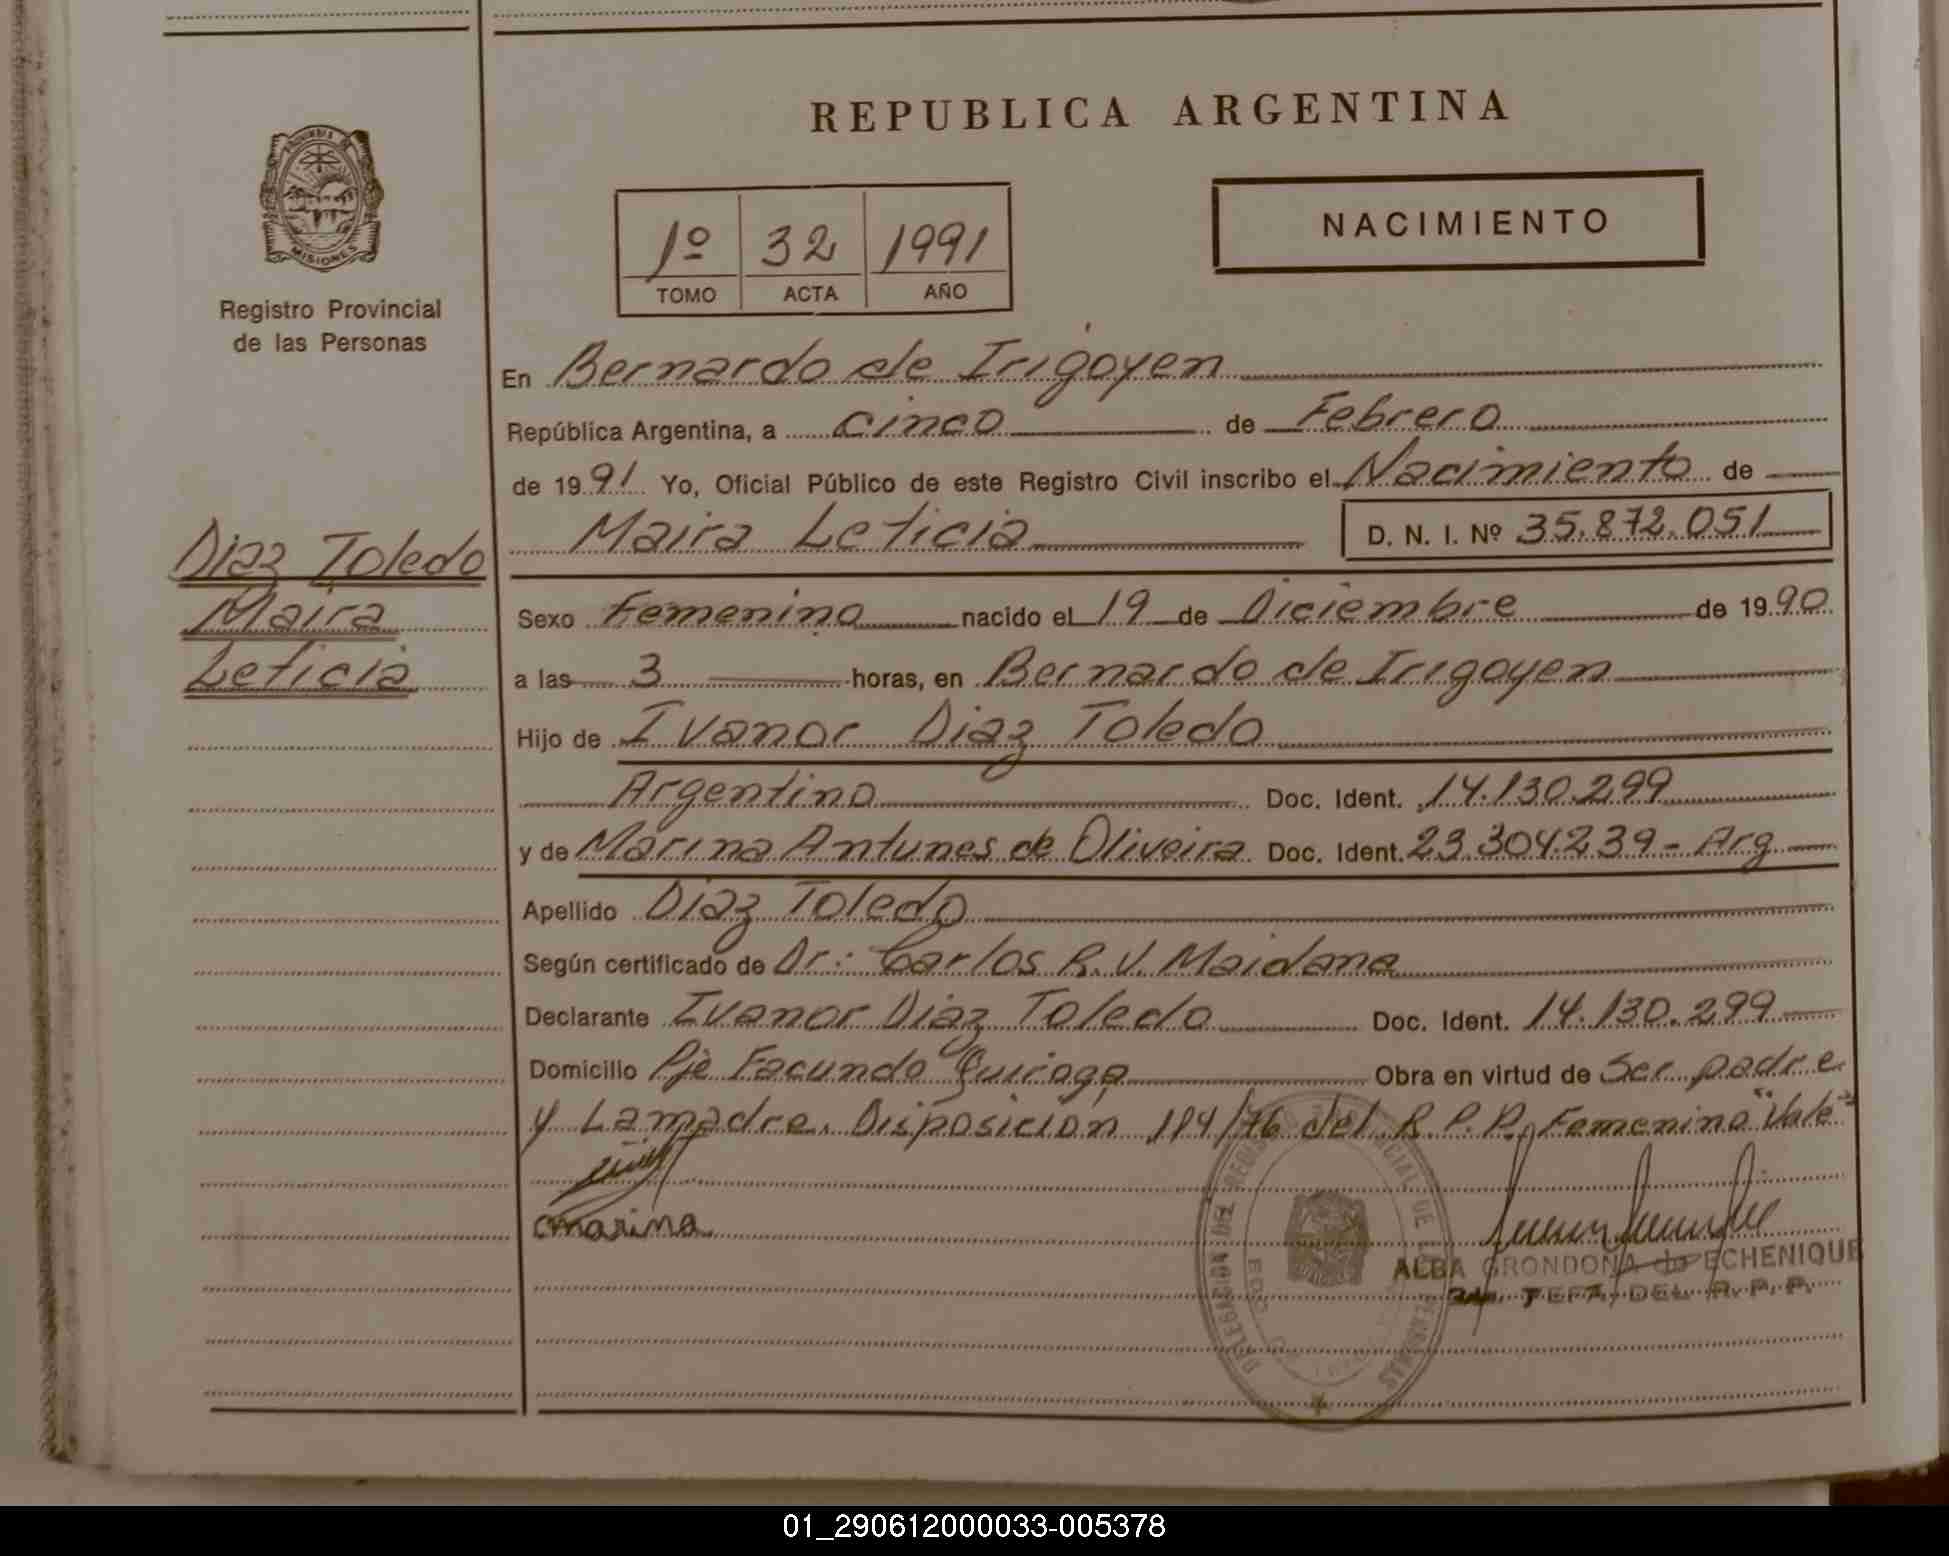 REPUBLICA ARGENTINA
MISIONES
Registro Provincial
de las Personas
1º 32 1991
TOMO ACTA AÑO
NACIMIENTO
En Bernardo de Irigoyen
República Argentina, a cinco de Febrero
de 1991 Yo, Oficial Público de este Registro Civil inscribo el Nacimiento de
Maira Leticia D. N. I. Nº 35.872.051
Diaz Toledo
Maira
Leticia
Sexo Femenino nacido el 19 de Diciembre de 1990
a las 3 horas, en Bernardo de Irigoyen
Hijo de Ivanor Diaz Toledo
Argentino Doc. Ident. 14.130.299
y de Marina Antunes de Oliveira Doc. Ident. 23.304.239 - Arg
Apellido Diaz Toledo
Según certificado de Dr.: Carlos R. V. Maidana
Declarante Ivanor Diaz Toledo Doc. Ident. 14.130.299
Domicilio Pje Facundo Quiroga Obra en virtud de Ser padre
y La madre. Disposición 114/76 del R. P. P. Femenino "Vale"
marina
DELEGACION DEL REGISTRO PROVINCIAL DE LAS PERSONAS
ALBA GRONDONA de ECHENIQUE
JEFA DEL R. P. P.
01_290612000033-005378